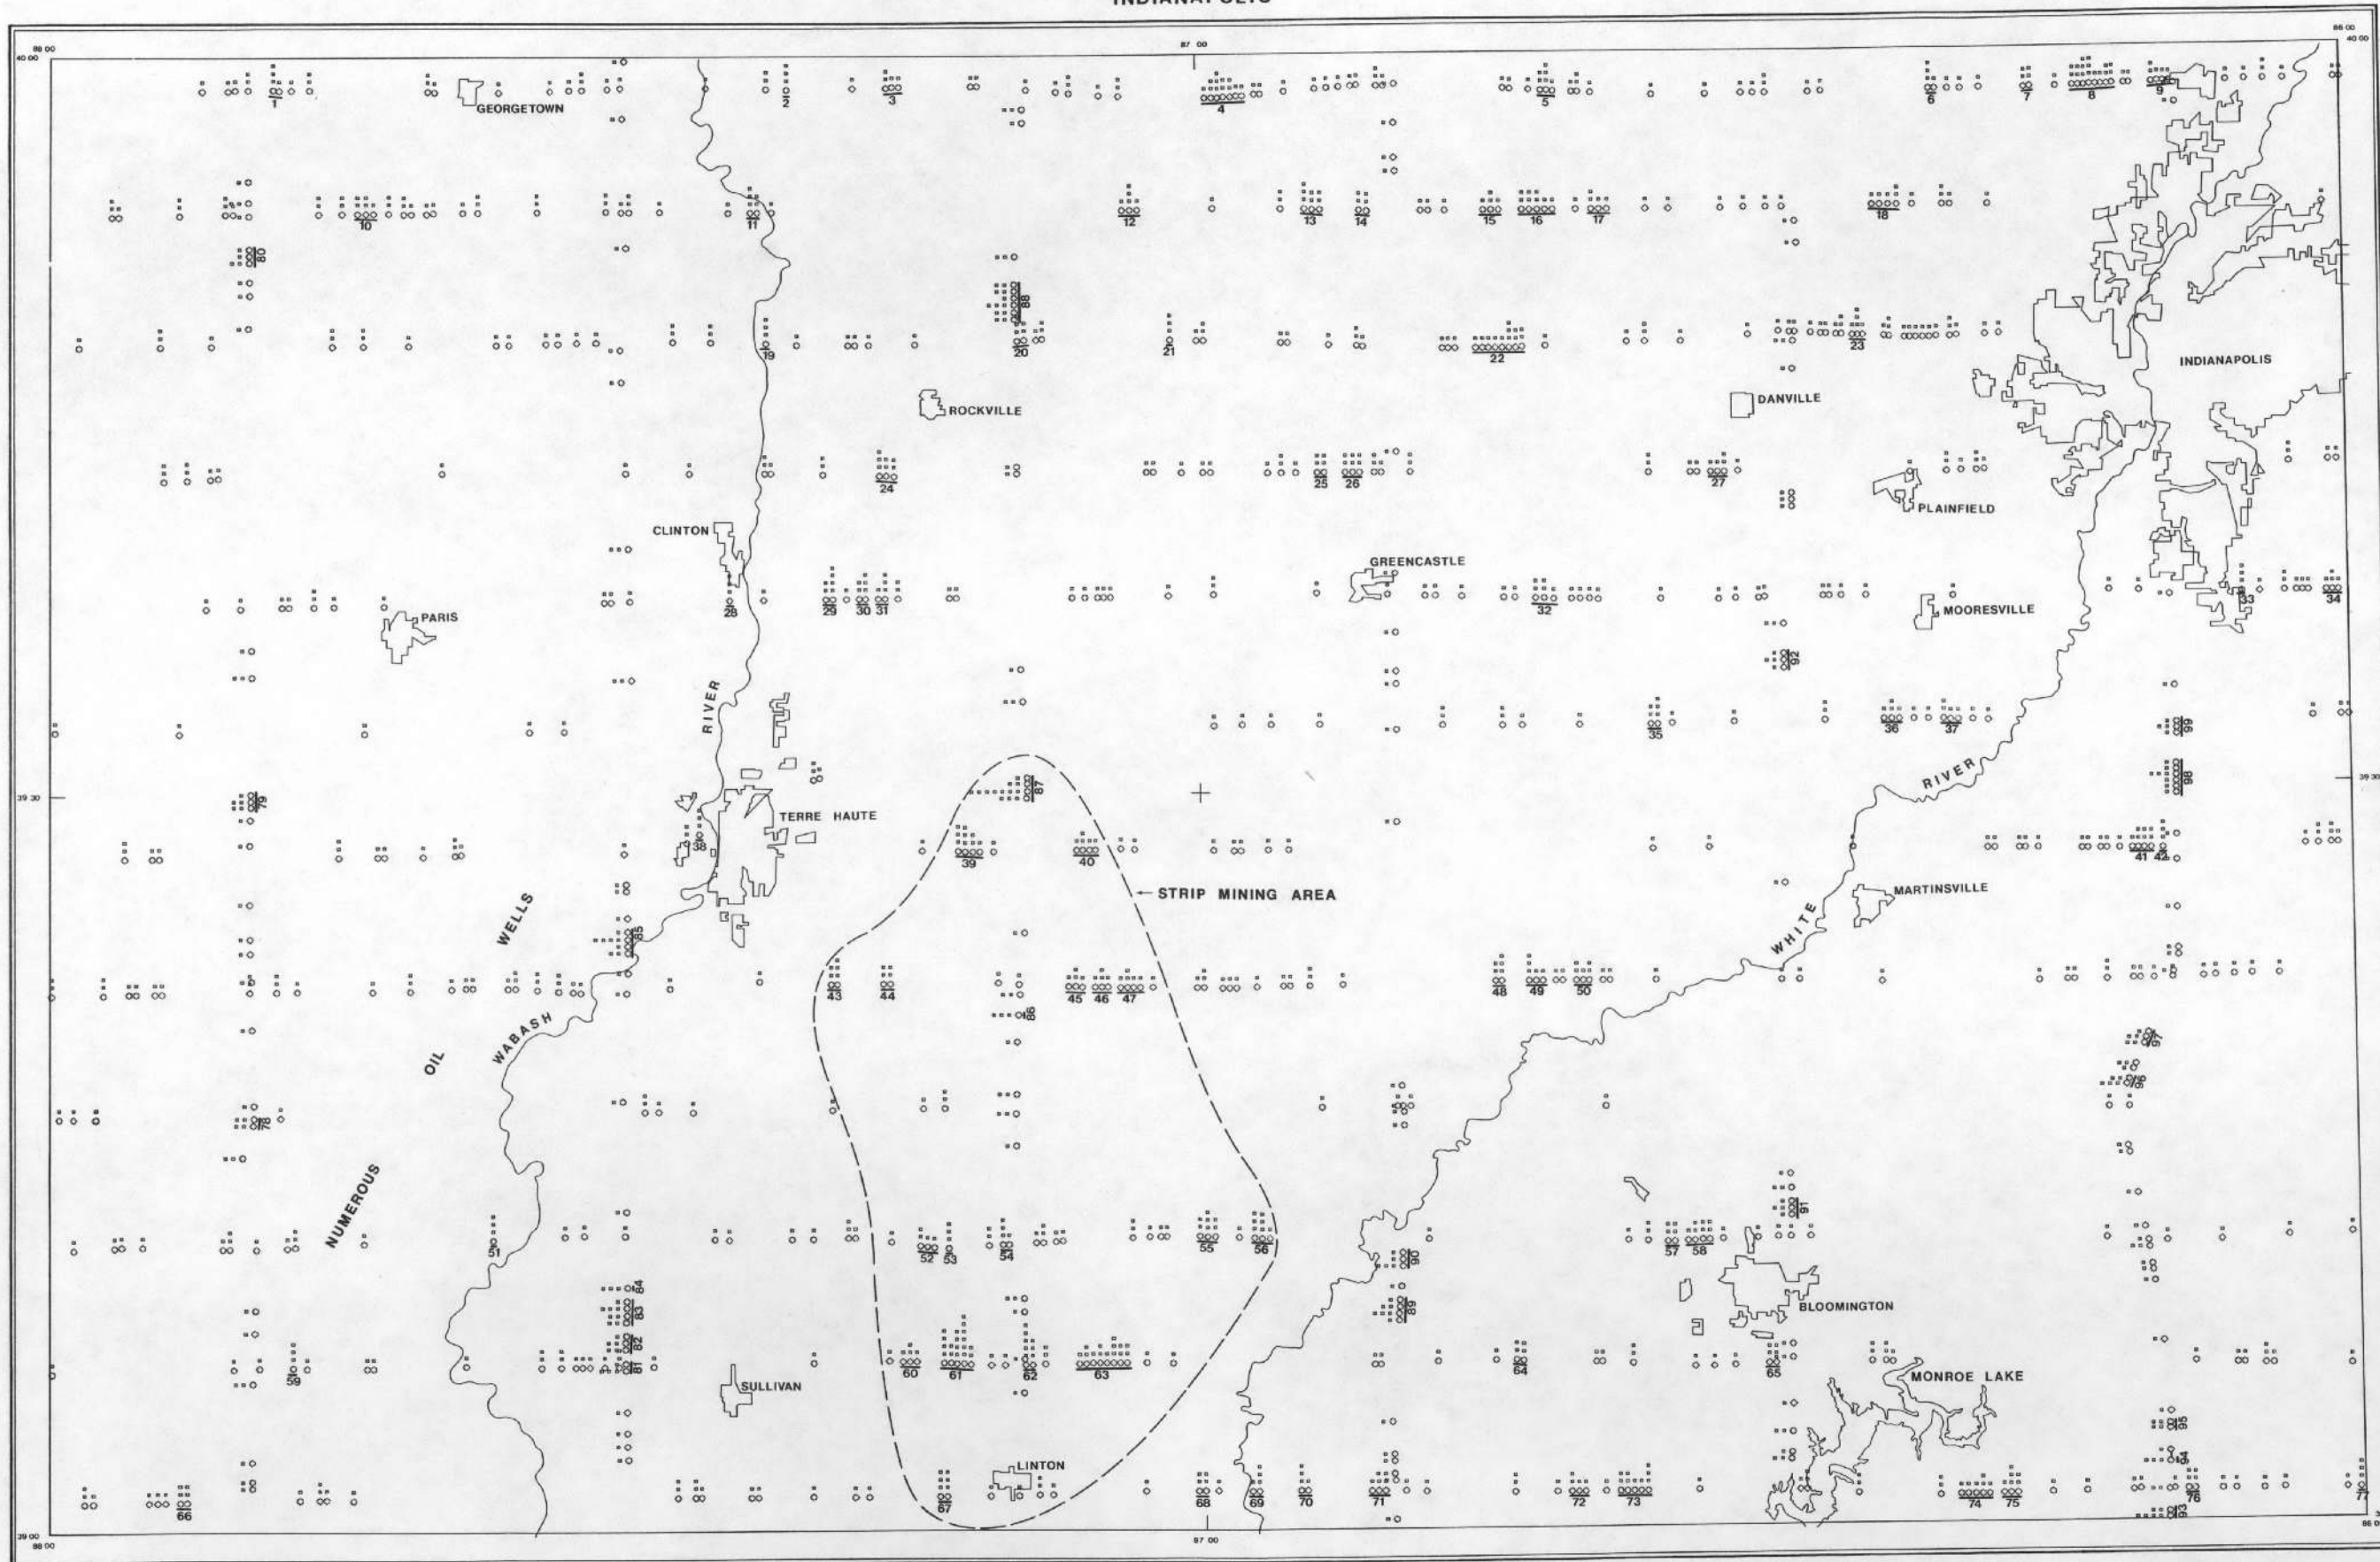 INDIANAPOLIS
88 00
87 00
86 00
40 00
40 00
1
2
3
4
5
6
7
8
9
GEORGETOWN
10
11
12
13
14
15
16
17
18
80
88
19
20
21
22
23
INDIANAPOLIS
ROCKVILLE
DANVILLE
24
25
26
27
PLAINFIELD
CLINTON
GREENCASTLE
28
29
30
31
32
33
34
PARIS
MOORESVILLE
92
RIVER
35
36
37
99
39 30
79
87
RIVER
98
39 30
TERRE HAUTE
38
39
40
41
42
STRIP MINING AREA
MARTINSVILLE
WELLS
85
WHITE
43
44
45
46
47
48
49
50
86
WABASH
OIL
97
96
78
NUMEROUS
91
51
52
53
54
55
56
57
58
90
84
83
89
BLOOMINGTON
82
59
81
60
61
62
63
64
65
SULLIVAN
MONROE LAKE
95
94
LINTON
66
67
68
69
70
71
72
73
74
75
76
77
93
39 00
88 00
87 00